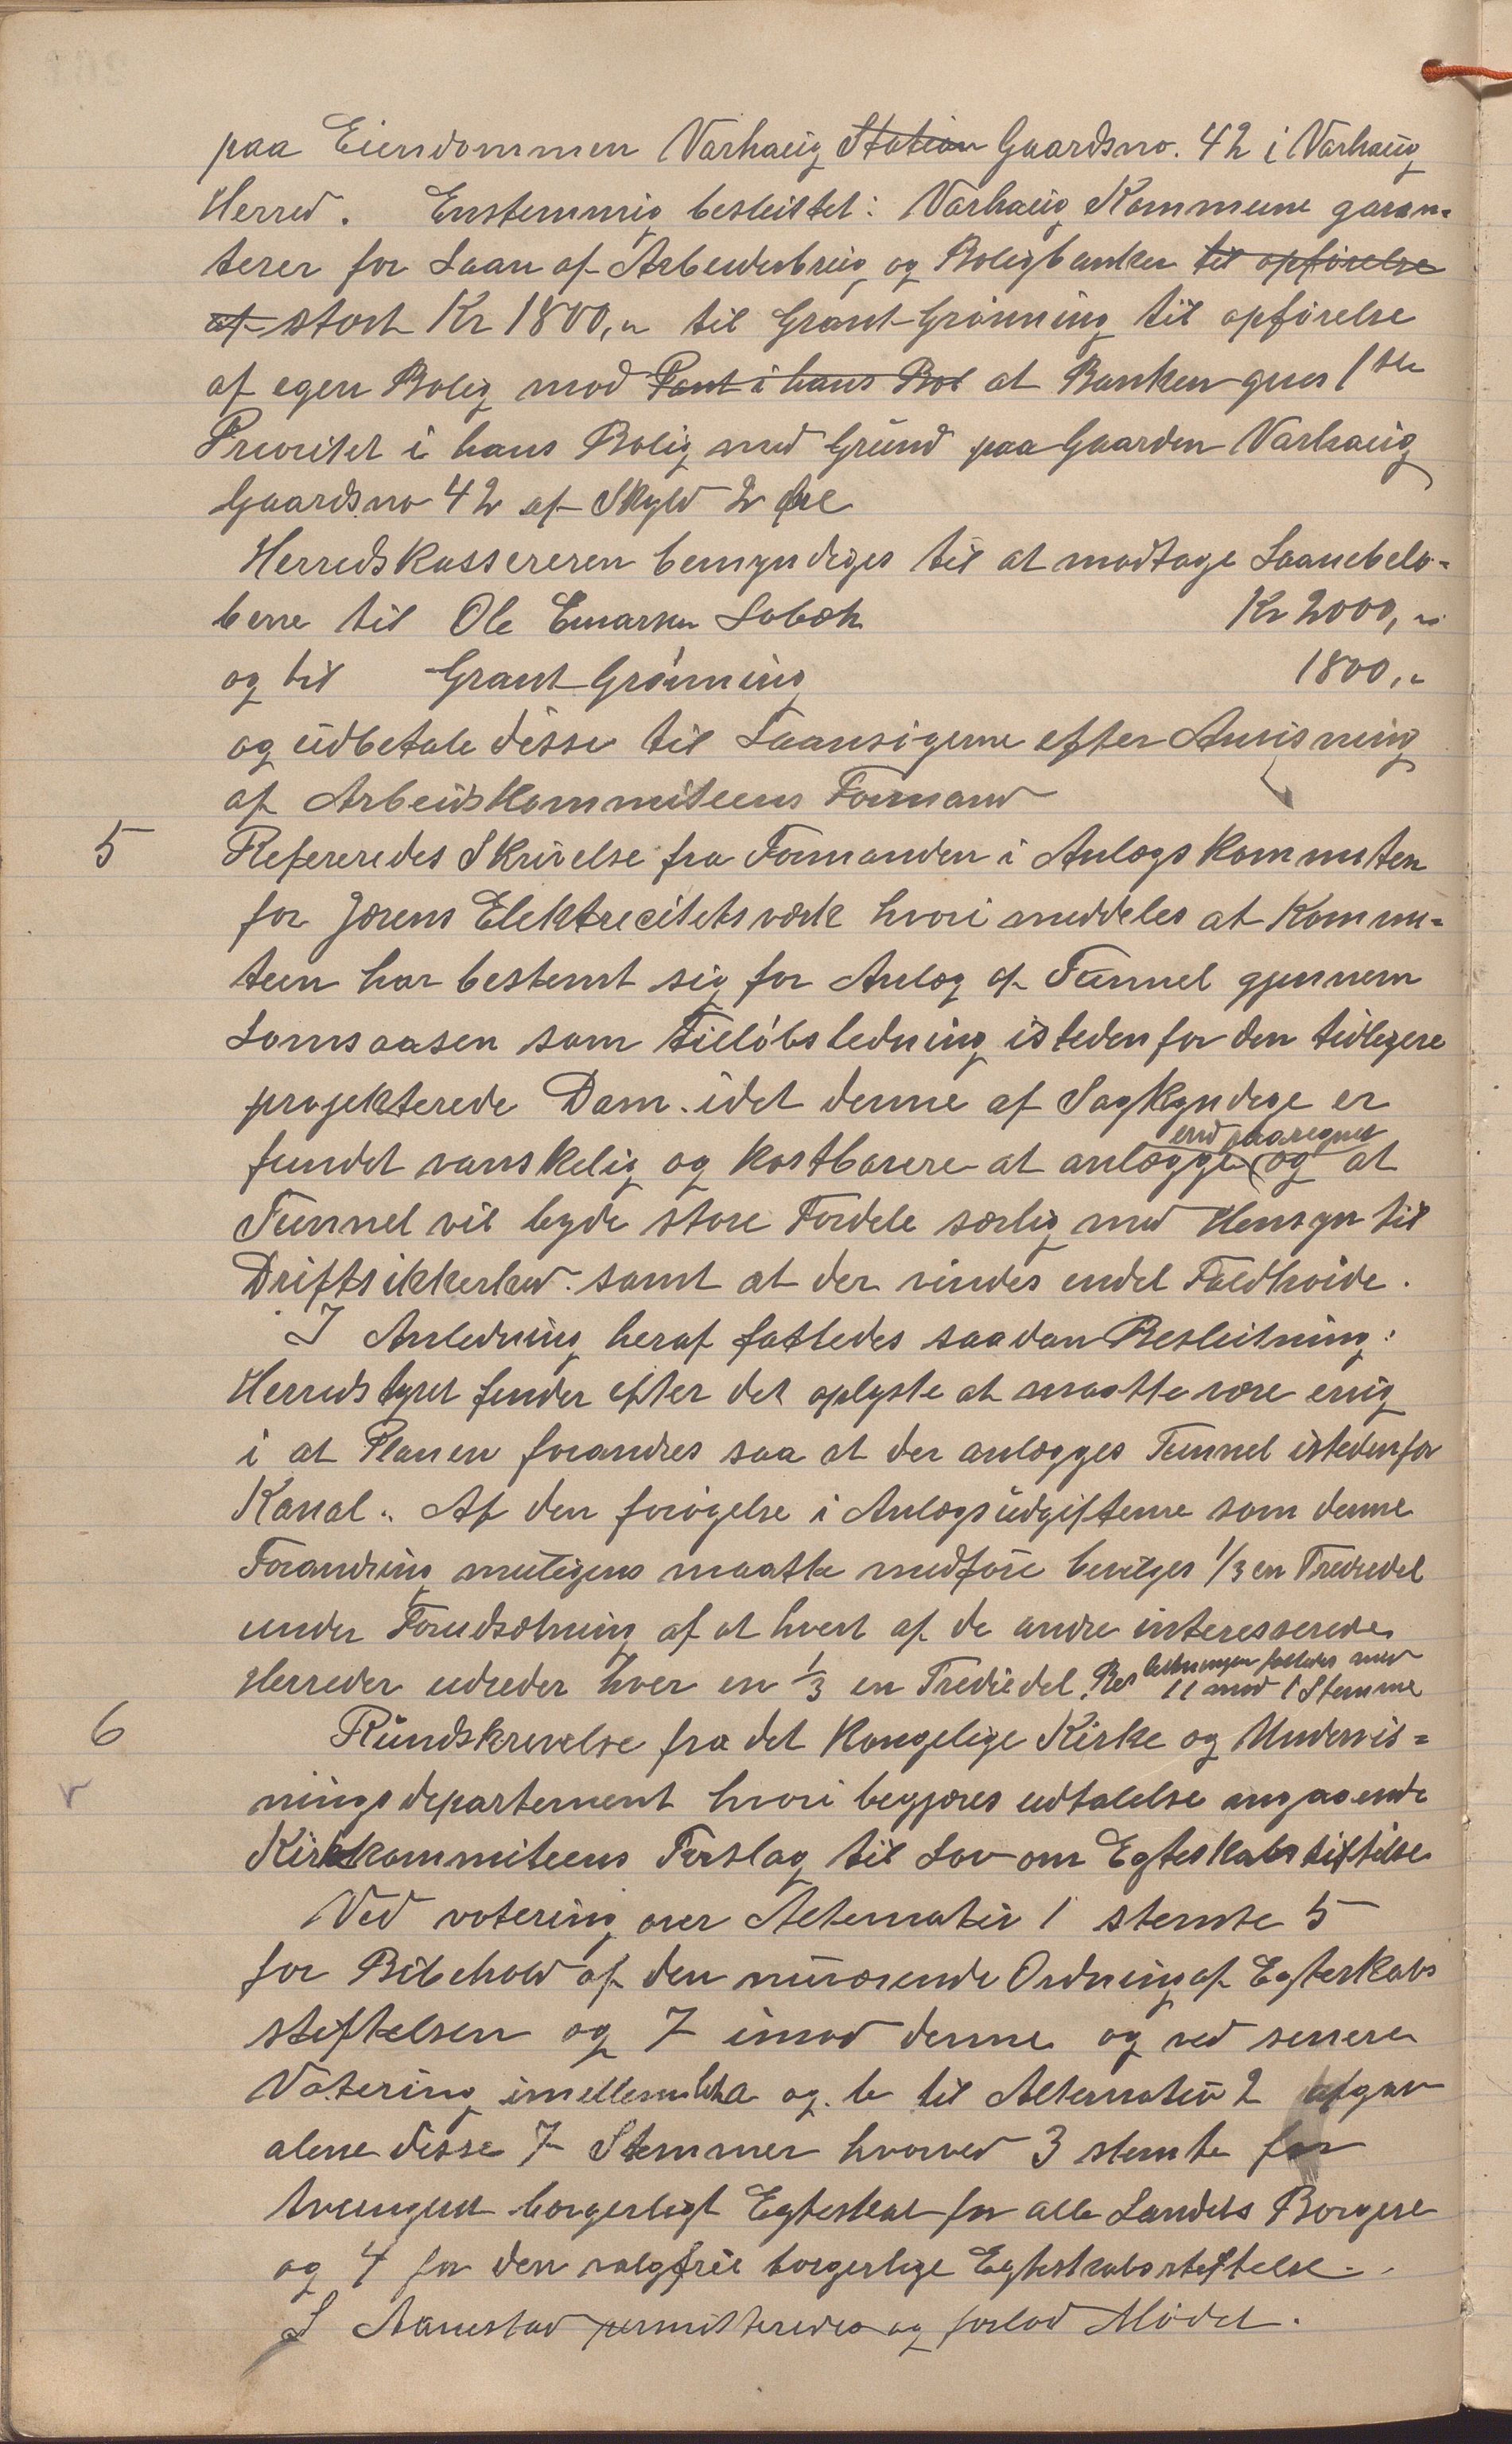 paa Eiendommen Varhaug Station Gaardsno. 42 i Varhaug
Herred. Enstemmig besluttet: Varhaug Kommune garan-
terer for Laan af Arbeiderbrug og Boligbanken til opførelse
af stort Kr 1800,- til Grant Grønning til opførelse
af egen Bolig mod Pant i hans Bol at Banken gives 1ste
Prioritet i hans Bolig med Grund paa Gaarden Varhaug
Gaardsno 42 af Skyld 2 Øre
Herredskassereren bemyndiges til at modtage Laanebelø-
bene til Ole Lobæk Kr 2000,-
og til Grant Grønning 1800,-
og udbetale disse til Laansøgerne efter Anvisning
af Arbeidskommiteens Formand
5 Refereredes Skrivelse fra Formanden i Anlægskommiten
for Jærens Elektricitetsværk hvori meddeles at Kommi-
teen har bestemt sig for Anlæg af Tunnel gjennem
Lomsaasen som tilløbsledning istedenfor den tidligere
projekterede Dam. idet denne af Sagkyndige er
end paaregnet
fundet vanskelig og kostbarere at anlægge og at
Tunnel vil byde store Fordele særlig med Hensyn til
Driftsikkerhed. samt at der vindes endel Faldhøide.
I Anledning heraf fattedes saadan Beslutning:
Herredstyret finder efter det oplyste at maatte være enig
i at Planen forandres saa at der anlægges Tunnel istedenfor
Kanal. Af den forøgelse i Anlægsudgifterne som denne
Forandring muligens maatte medføre bevilges 1/3 en Trediedel
under Forudsætning af at hvert af de andre interesserede
Herreder udreder hver en 1/3 en Trediedel. Beslutningen fattedes med
11 mod 1 Stemme
6 Rundskrivelse fra det Kongelige Kirke og Undervis-
ningsdepartement hvori begjæres udtalelse angaaende
Kirkekommiteens Forslag til Lov om Egteskabsstiftelse
Ved votering over Alternativ 1 stemte 5
for Bibehold af den nuværende Ordning af Egteskabs
stiftelsen og 7 imod denne og ved senere
Votering imellem lit. a og b til Alternativ 2 afgav
alene disse 7 Stemmer hvorved 3 stemte for
tvungen borgerligt Egteskab for alle Landets Borgere
og 4 for den valgfrie borgerlige Egteskabsstiftelse.
S Aanestad permitteredes og forlod Mødet.